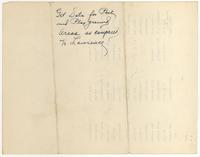 Get Data for Park
and Playground
areas as compared
to Lawrence